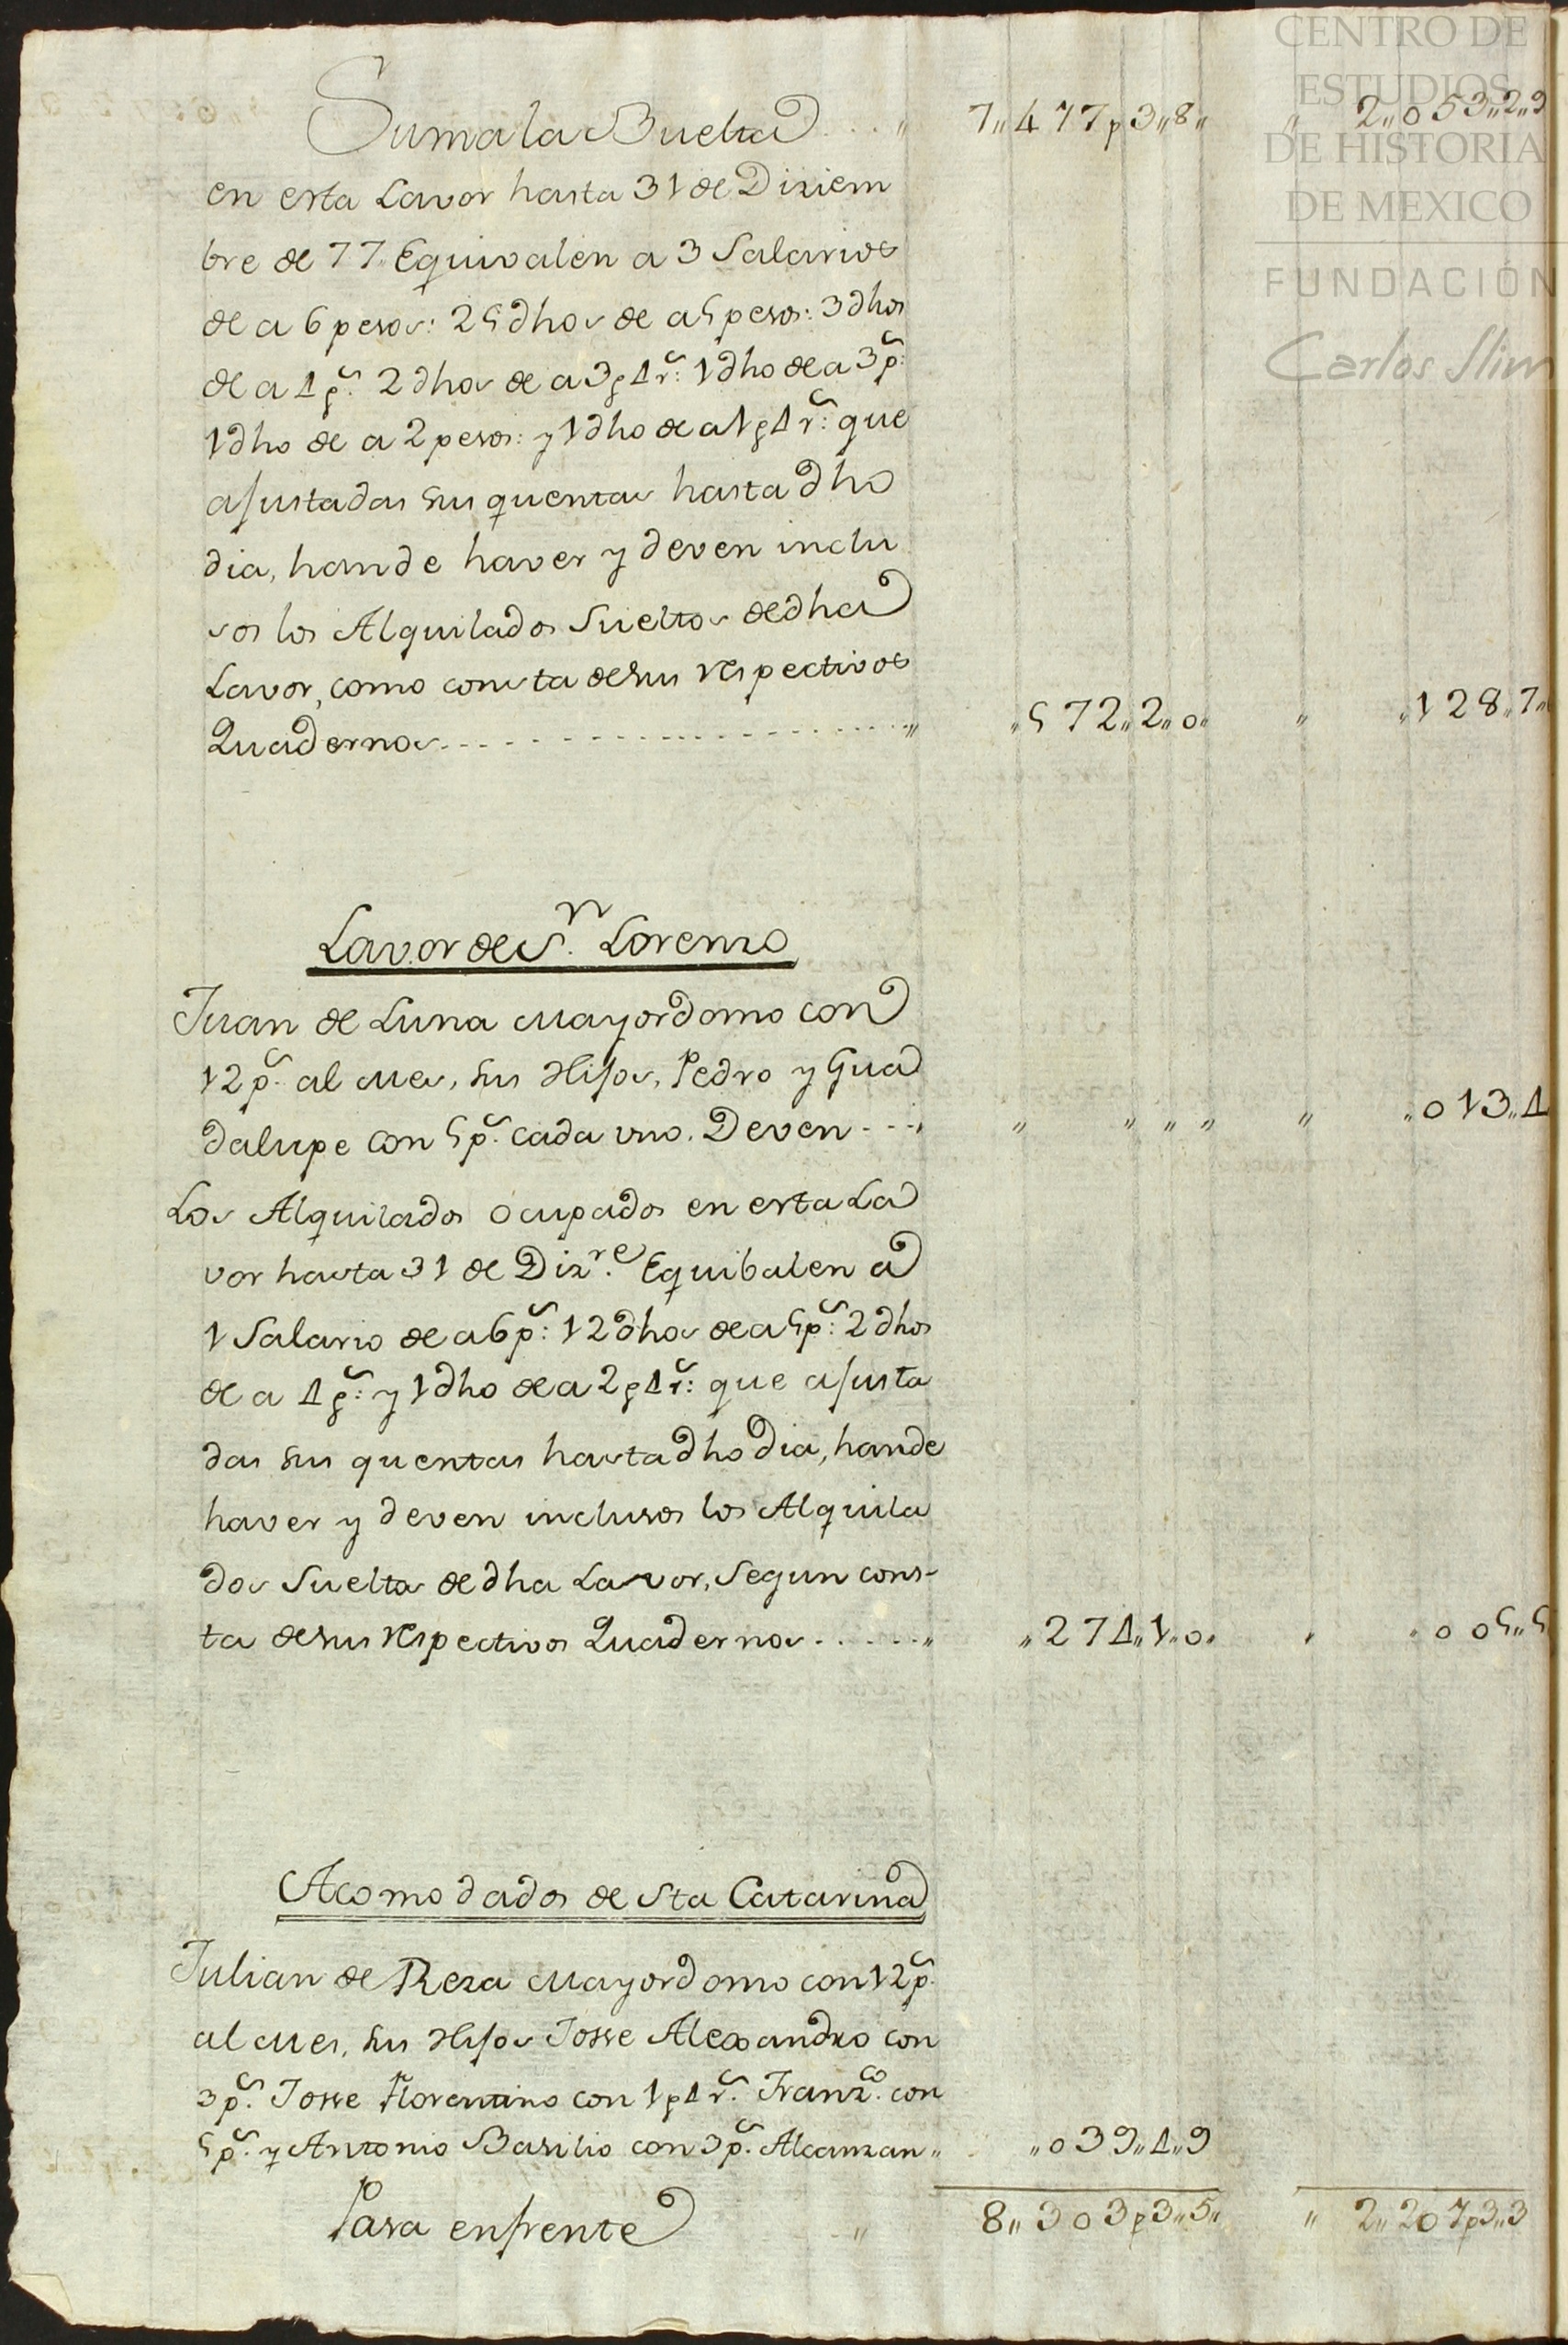 CENTRO DE
ESTUDIOS
DE HISTORIA
DE MEXICO
FUNDACIÓN
Carlos Slim
Suma la Buelta . . . " 7" 477 p 3" 8" " 2" 053" 2" 9
en esta Lavor hasta 31 de Diziem
bre de 77 Equivalen a 3 Salarios
de a 6 pesos: 25 dhos de a 5 pesos: 3 dhos
de a 4 ps: 2 dhos de a 3 p 4 rs: 1 dho de a 3 ps:
1 dho de a 2 pesos: y 1 dho de a 1 p 4 rs: que
ajustadas sus quentas hasta dho
dia, han de haver y deven inclu
sos los Alquilados Sueltos de dha
Lavor, como consta de sus respectivos
Quadernos - - - - - - - " " 572" 2" 0" " " 128" 7"
Lavor de Sn. Lorenzo
Juan de Luna Mayordomo con
12 ps. al Mes, sus Hijos, Pedro y Guad
dalupe con 5 ps. cada uno. Deven - - - " " " " " " " 013" 4
Los Alquilados ocupados en esta La
vor hasta 31 de Dizre. Equibalen a
1 Salario de a 6 ps: 12 dhos de a 5 ps: 2 dhos
de a 4 ps: y 1 dho de a 2 p 4 rs: que ajusta
das sus quentas hasta dho dia, han de
haver y deven inclusos los Alquila
dos Sueltos de dha Lavor, Segun cons-
ta de sus respectivos Quadernos . . . . . " " 274" 1" 0" " " 005" 5
Acomodados de Sta Catarina
Julian de Reza Mayordomo con 12 ps.
al Mes, sus Hijos Josse Alexandro con
3 ps. Josse Florentino con 1 p 4 rs. Franco. con
5 ps. y Antonio Basilio con 3 ps. Alcanzan " " 039" 4" 9
Para enfrente " 8" 303 p 3" 5" " 2" 207 p 3" 3